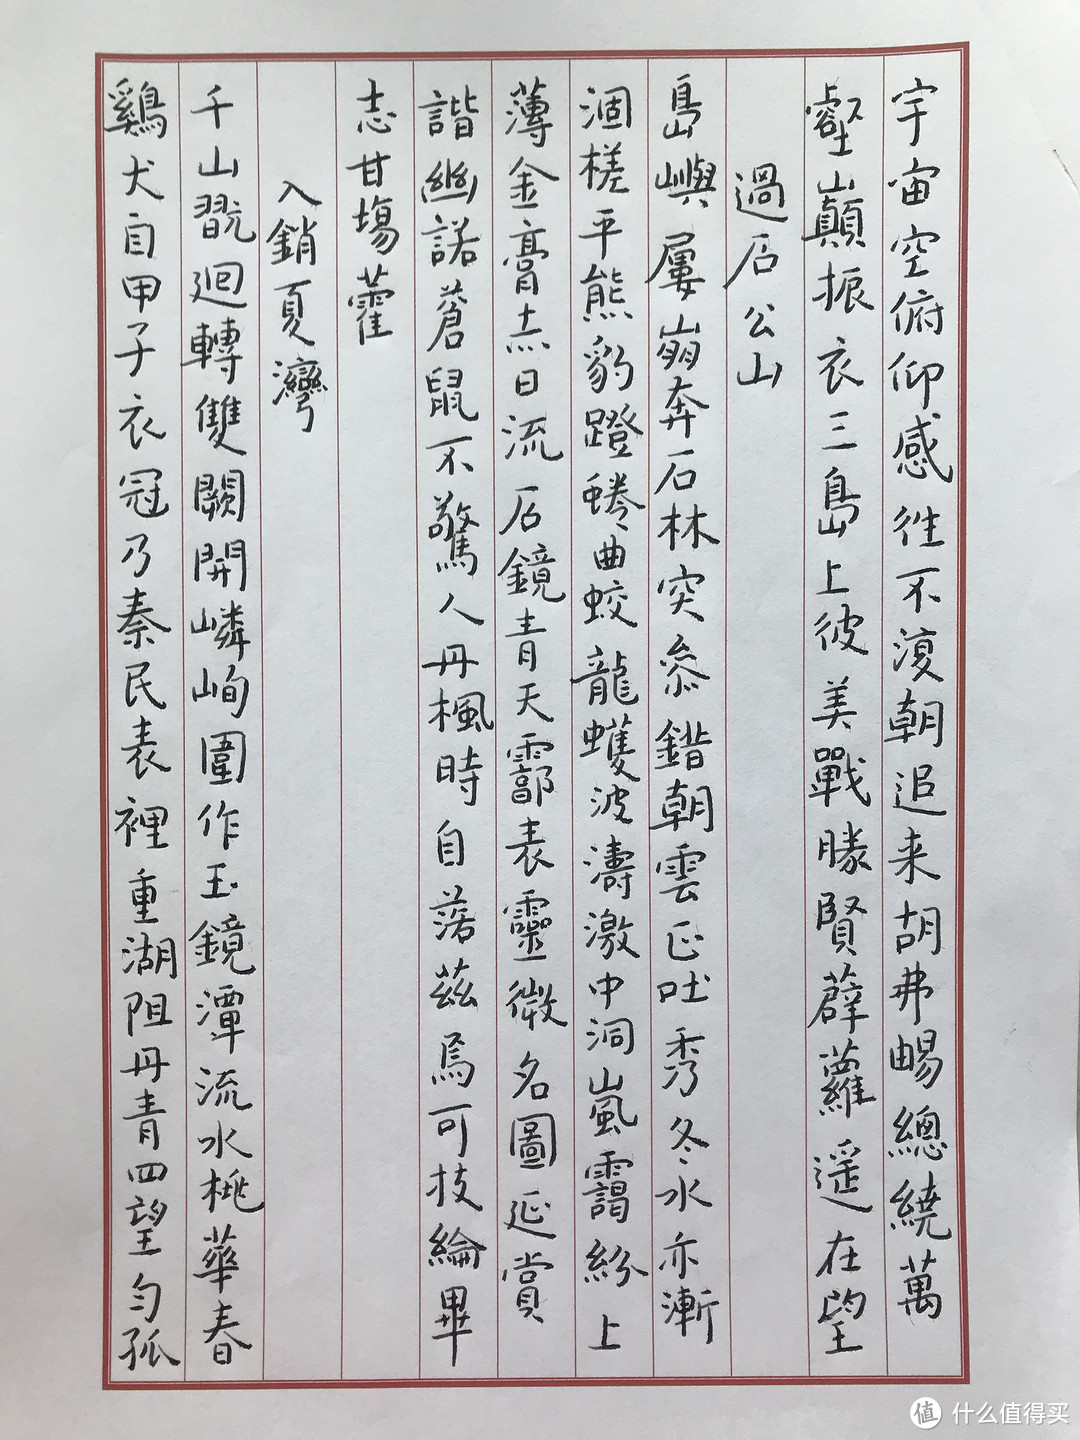 宇宙空俯仰感往不復朝追来胡弗暢總繞萬
壑山巔振衣三島上彼美戰勝賢薜蘿遥在望
過石公山
島嶼屢崩奔石林突叅錯朝雲正吐秀冬水亦漸
涸槎平熊豹蹬蜷曲蛟龍蠖波濤激中洞嵐靄紛上
薄金膏赤日流石鏡青天霩表靈徵名圖延賞
諧幽諾蒼鼠不驚人丹楓時自落茲焉可投綸畢
志甘場藿
入銷夏灣
千山翫迴轉雙闕開嶙峋圍作玉鏡潭流水桃華春
鷄犬自甲子衣冠乃秦民表裡重湖阻丹青四望勻孤
值 什么值得买